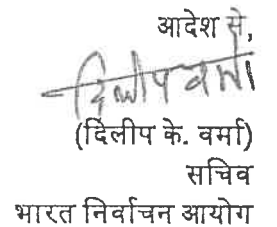 आदेश से,
दिलीप वर्मा
(दिलीप के. वर्मा)
सचिव
भारत निर्वाचन आयोग